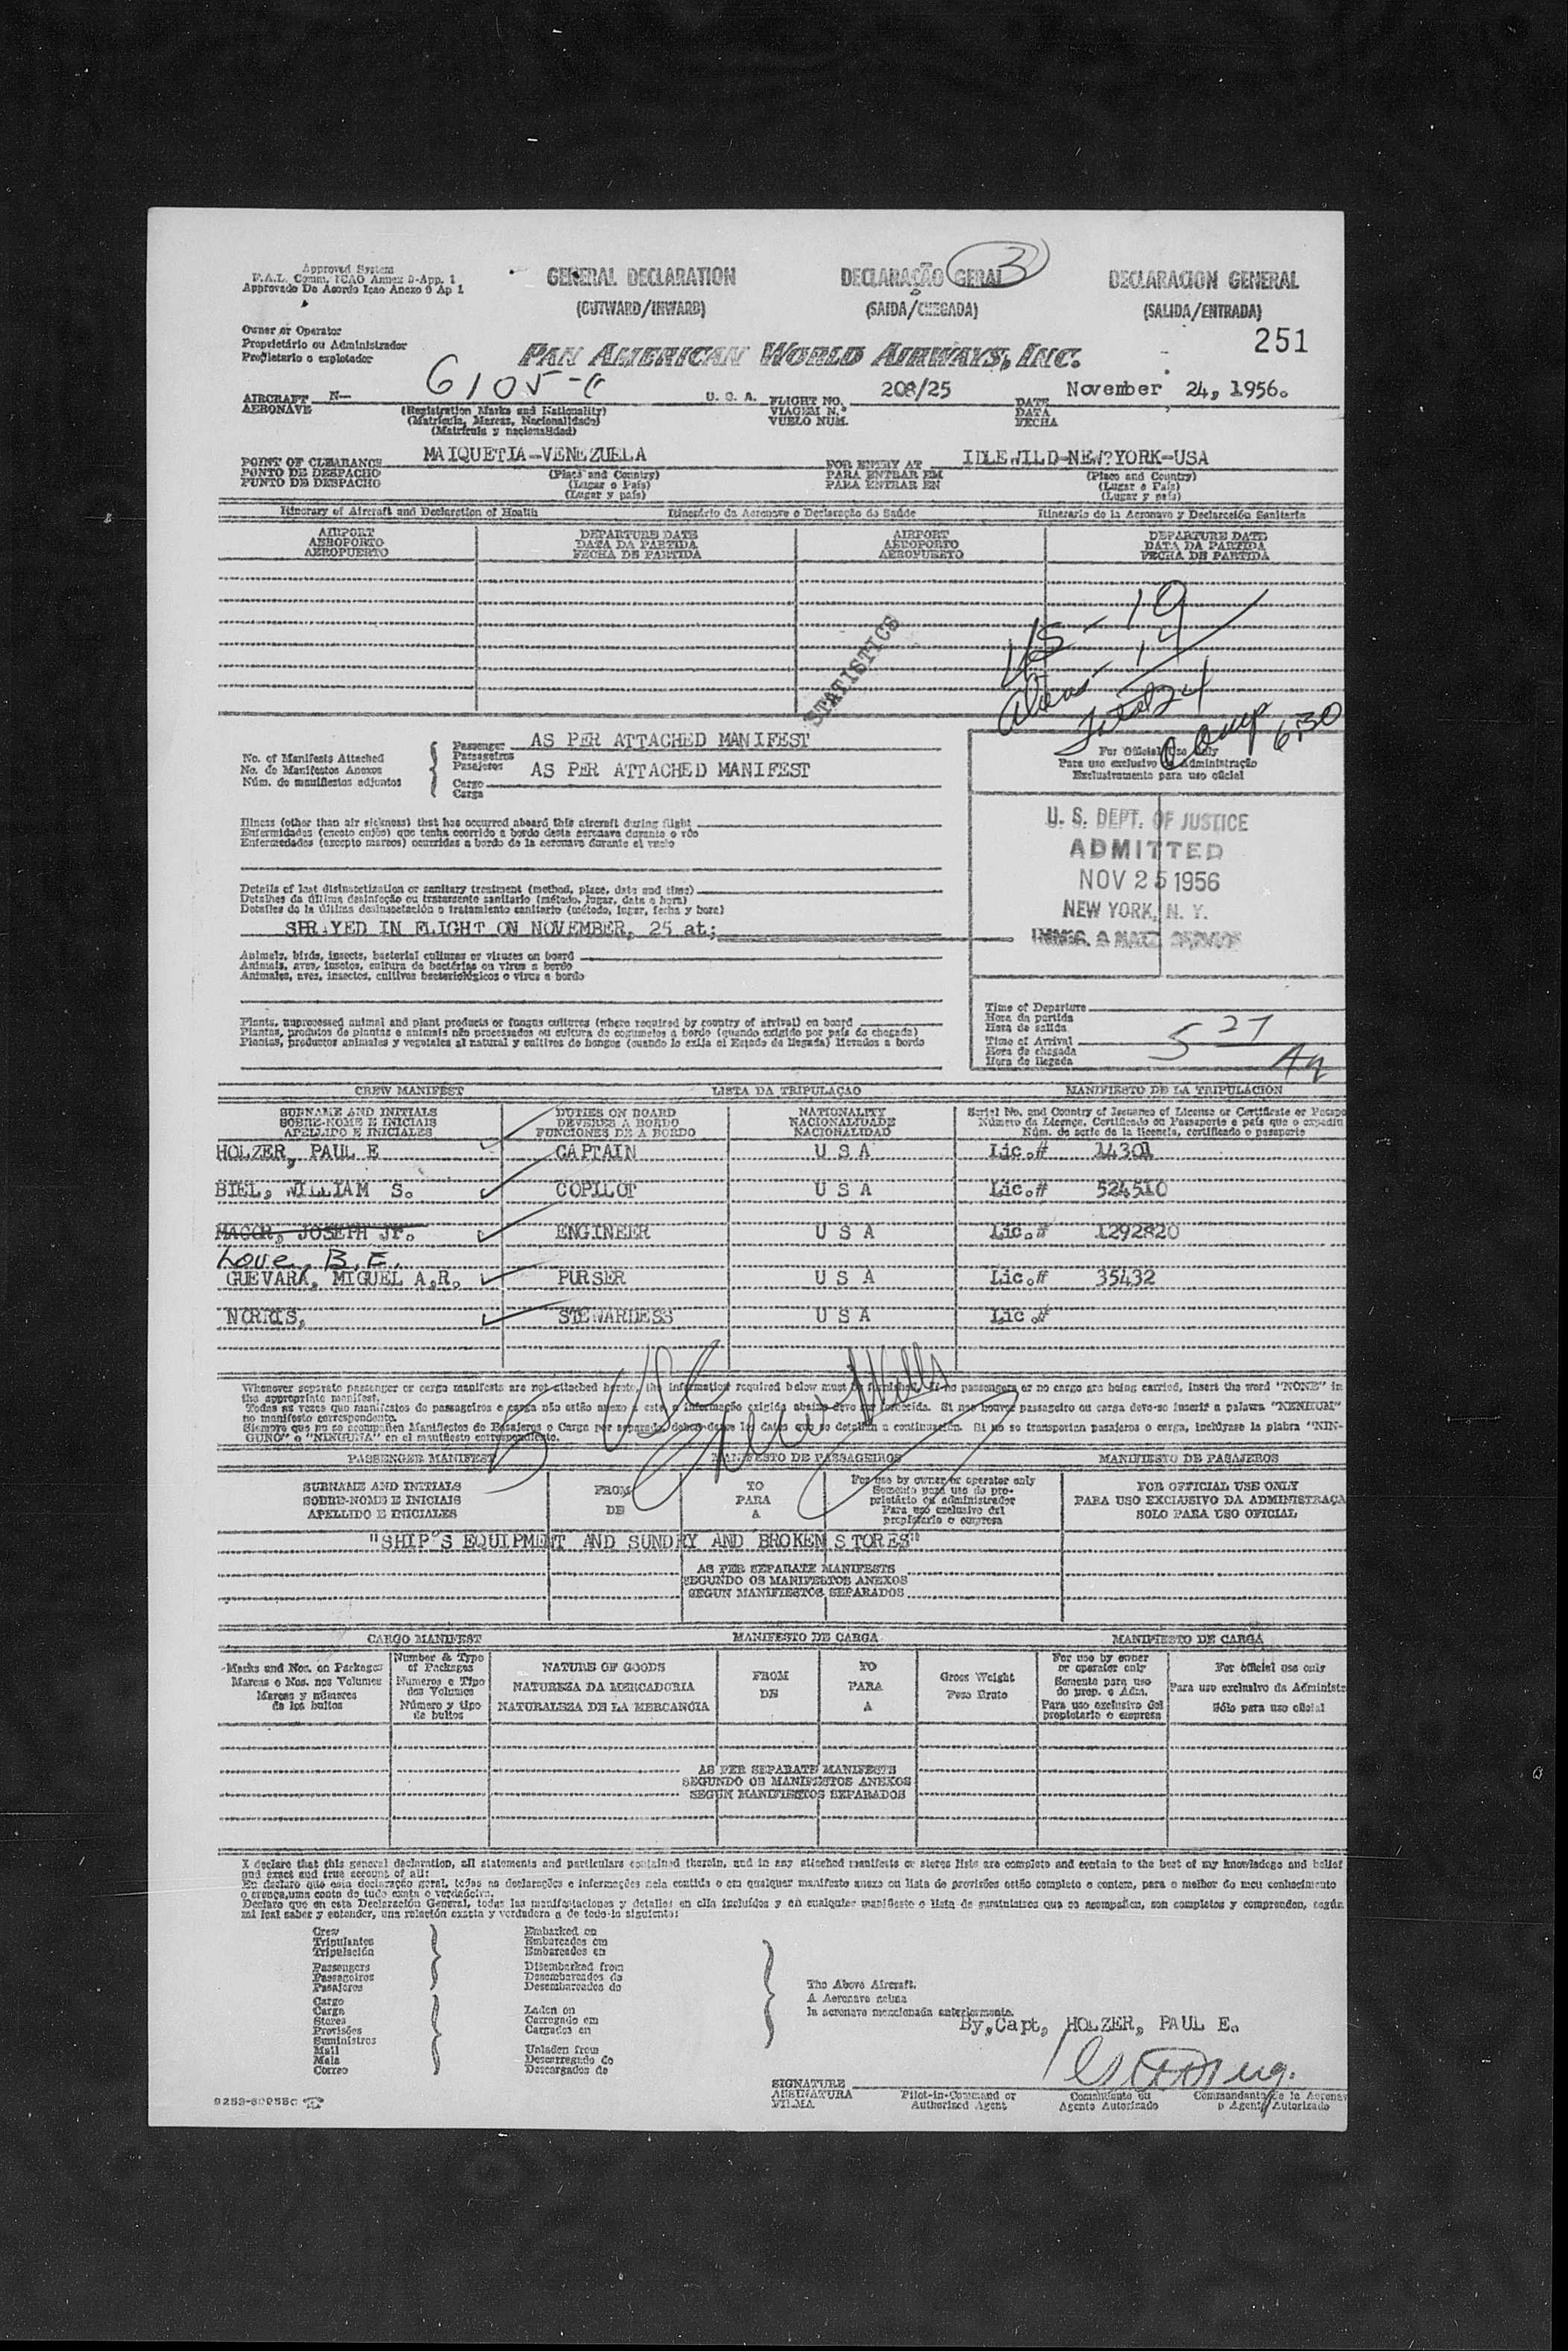 Approved System
F.A.L. Comm. ICAO Annex 9-App. 1
Approvado De Acordo Icao Anexo 9 Ap 1
GENERAL DECLARATION
(OUTWARD/INWARD)
DECLARAÇÃO GERAL
(SAIDA/CHEGADA)
3
DECLARACION GENERAL
(SALIDA/ENTRADA)
251
Owner or Operator
Proprietário ou Administrador
Propietario o explotador
PAN AMERICAN WORLD AIRWAYS, INC.
AIRCRAFT N- 6105-C U. S. A. FLIGHT NO. 208/25 DATE November 24, 1956.
AERONAVE (Registration Marks and Nationality) VIAGEM N.º DATA
(Matricula, Marcas, Nacionalidade) VUELO NUM. FECHA
(Matrícula y nacionalidad)
POINT OF CLEARANCE MAIQUETIA-VENEZUELA FOR ENTRY AT IDLEWILD-NEW?YORK-USA
PONTO DE DESPACHO (Place and Country) PARA ENTRAR EM (Place and Country)
PUNTO DE DESPACHO (Lugar o País) PARA ENTRAR EN (Lugar o País)
(Lugar y país) (Lugar y país)
Itinerary of Aircraft and Declaration of Health Itinerário da Aeronave e Declaração de Saúde Itinerario de la Aeronave y Declaración Sanitaria
AIRPORT DEPARTURE DATE AIRPORT DEPARTURE DATE
AEROPORTO DATA DA PARTIDA AEROPORTO DATA DA PARTIDA
AEROPUERTO FECHA DE PARTIDA AEROPUERTO FECHA DE PARTIDA
STATISTICS
US - 10
Aliens - 14
Total 24
Comp 6:30
No. of Manifests Attached
No. de Manifestos Anexos
Núm. de manifiestos adjuntos
Passenger AS PER ATTACHED MANIFEST
Passageiros
Pasajeros
Cargo AS PER ATTACHED MANIFEST
Carga
For Official Use Only
Para uso exclusivo da Administração
Exclusivamente para uso oficial
Illness (other than air sickness) that has occurred aboard this aircraft during flight
Enfermidades (exceto enjôo) que tenha ocorrido a bordo desta aeronave durante o vôo
Enfermedades (excepto mareos) ocurridas a bordo de la aeronave durante el vuelo
U. S. DEPT. OF JUSTICE
ADMITTED
NOV 25 1956
NEW YORK, N. Y.
IMMIG. & NATZ. SERVICE
Details of last disinsectization or sanitary treatment (method, place, date and time)
Detalhes da última desinfeção ou tratamento sanitario (método, lugar, data e hora)
Detalles de la última desinsectación o tratamiento sanitario (método, lugar, fecha y hora)
SPRAYED IN FLIGHT ON NOVEMBER, 25 at;
Animals, birds, insects, bacterial cultures or viruses on board
Animais, aves, insetos, cultura de bactérias ou virus a bordo
Animales, aves, insectos, cultivos bacteriológicos o virus a bordo
Plants, unprocessed animal and plant products or fungus cultures (where required by country of arrival) on board
Plantas, produtos de plantas e animais não processados ou cultura de cogumelos a bordo (quando exigido por país de chegada)
Plantas, productos animales y vegetales al natural y cultivos de hongos (cuando lo exija el Estado de llegada) llevados a bordo
Time of Departure
Hora da partida
Hora de salida
Time of Arrival 5 27
Hora de chegada
Hora de llegada
CREW MANIFEST LISTA DA TRIPULAÇAO MANIFIESTO DE LA TRIPULACION
SURNAME AND INITIALS DUTIES ON BOARD NATIONALITY Serial No. and Country of Issuance of License or Certificate or Passpo
SOBRE-NOME E INICIAIS DEVERES A BORDO NACIONALIDADE Número da Licença, Certificado ou Passaporte e país que o expediu
APELLIDO E INICIALES FUNCIONES DE A BORDO NACIONALIDAD Núm. de serie de la licencia, certificado o pasaporte
HOLZER, PAUL E CAPTAIN U S A Lic.# 14301
BIEL, WILLIAM S. COPILOT U S A Lic.# 524510
MAGOR, JOSEPH Jr. ENGINEER U S A Lic.# 1292820
Love, B. E.
GUEVARA, MIGUEL A.R. PURSER U S A Lic.# 35432
NORRIS, STEWARDESS U S A Lic.#
5 USC
Crew
Whenever separate passenger or cargo manifests are not attached hereto, the information required below must be furnished. If no passengers or no cargo are being carried, insert the word "NONE" in
the appropriate manifest.
Todas as vezes que manifestos de passageiros e carga não estão anexo a este a informação exigida abaixo deve ser fornecida. Si não houver passageiro ou carga deve-se inserir a palavra "NENHUM"
no manifesto correspondente.
Siempre que no se acompañen Manifiestos de Pasajeros o Carga por separado, deben darse los datos que se detallan a continuación. Si no se transportan pasajeros o carga, inclúyase la plabra "NIN-
GUNO" o "NINGUNA" en el manifiesto correspondiente.
PASSENGER MANIFEST MANIFESTO DE PASSAGEIROS MANIFIESTO DE PASAJEROS
SURNAME AND INITIALS
SOBRE-NOME E INICIAIS
APELLIDO E INICIALES
FROM
DE
TO
PARA
A
For use by owner or operator only
Somente para uso do pro-
prietário ou administrador
Para uso exclusivo del
propietario o empresa
FOR OFFICIAL USE ONLY
PARA USO EXCLUSIVO DA ADMINISTRAÇA
SOLO PARA USO OFICIAL
"SHIP'S EQUIPMENT AND SUNDRY AND BROKEN STORES"
AS PER SEPARATE MANIFESTS
SEGUNDO OS MANIFESTOS ANEXOS
SEGUN MANIFIESTOS SEPARADOS
CARGO MANIFEST MANIFESTO DE CARGA MANIFIESTO DE CARGA
Marks and Nos. on Packages
Marcas e Nos. nos Volumes
Marcas y números
de los bultos
Number & Type
of Packages
Numeros e Tipo
dos Volumes
Número y tipo
de bultos
NATURE OF GOODS
NATUREZA DA MERCADORIA
NATURALEZA DE LA MERCANCIA
FROM
DE
TO
PARA
A
Gross Weight
Peso Bruto
For use by owner
or operator only
Somente para uso
do prop. e Adm.
Para uso exclusivo del
propietario o empresa
For official use only
Para uso exclusivo da Administr
Sólo para uso oficial
AS PER SEPARATE MANIFESTS
SEGUNDO OS MANIFESTOS ANEXOS
SEGUN MANIFIESTOS SEPARADOS
I declare that this general declaration, all statements and particulars contained therein, and in any attached manifests or stores lists are complete and contain to the best of my knowledege and belief
and exact and true account of all:
Eu declaro que esta declaração geral, todas as declarações e informações nela contida e em qualquer manifesto anexo ou lista de provisões estão completo e contem, para o melhor do meu conhecimento
e crença, uma conta de tudo exata e verdadeira.
Declaro que en esta Declaración General, todas las manifestaciones y detalles en ella incluídos y en cualquier manifiesto o lista de suministros que se acompañen, son completos y comprenden, según
mi leal saber y entender, una relación exacta y verdadera a de todo lo siguiente:
Crew
Tripulantes
Tripulación
Passengers
Passageiros
Pasajeros
Cargo
Carga
Stores
Provisões
Suministros
Mail
Mala
Correo
Embarked on
Embarcados em
Embarcados en
Disembarked from
Desembarcados de
Desembarcados de
Laden on
Carregado em
Cargados en
Unladen from
Descarregado de
Descargados de
The Above Aircraft.
A Aeronave acima
la aeronave mencionada anteriormente.
By, Capt, HOLZER, PAUL E.
SIGNATURE
ASSINATURA
FIRMA
Pilot-in-Command or
Authorized Agent
Comandante ou
Agente Autorizado
Commandante de la Aeronav
o Agente Autorizado